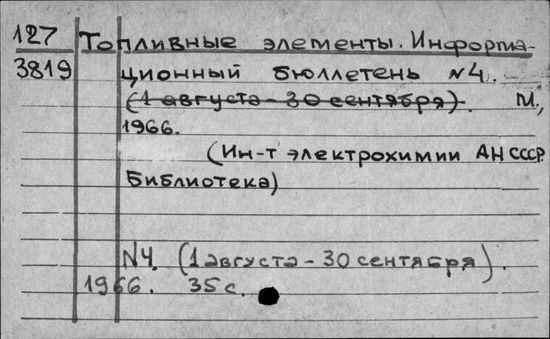 127 Топливные элементы. Информа-
3819 ционный бюллетень №4.
(1 августа - 30 сентября). М.,
1966.
(Ин-т электрохимии АН СССР.
Библиотека)
№4. (1 августа - 30 сентября).
1966. 35 с.